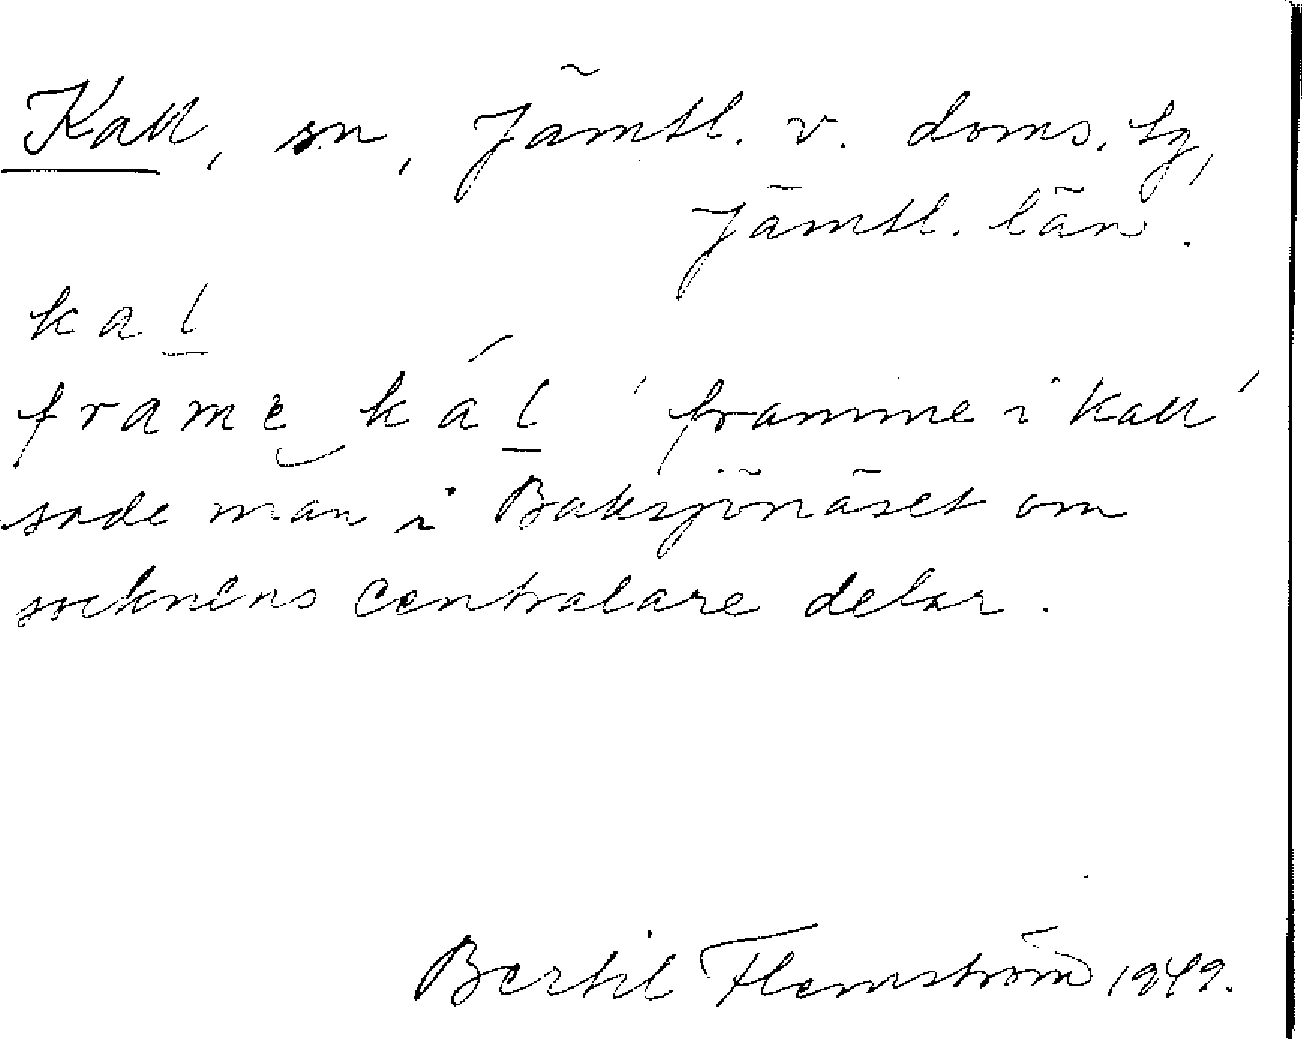 Kall, sn, Jämtl. v. doms. tg,
Jämtl. län.
kal̲
frame̬ kál̲ 'framme i Kall'
sade man i Baksjönäset om
socknens centralare delar.
Bertil Flemström 1949.